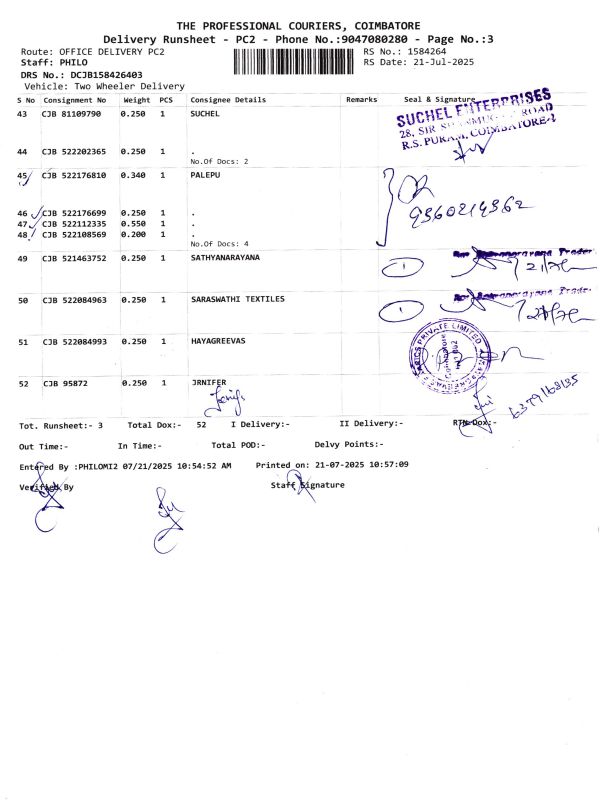 THE PROFESSIONAL COURIERS, COIMBATORE
Delivery Runsheet - PC2 - Phone No.:9047080280 - Page No.:3
Route: OFFICE DELIVERY PC2 RS No.: 1584264
Staff: PHILO RS Date: 21-Jul-2025
DRS No.: DCJB158426403
Vehicle: Two Wheeler Delivery
S No Consignment No Weight PCS Consignee Details Remarks Seal & Signature
43 CJB 81109790 0.250 1 SUCHEL
SUCHEL ENTERPRISES
28, SIR ROAD
R.S. PURAM, COIMBATORE-
44 CJB 522202365 0.250 1 .
No.Of Docs: 2
45 CJB 522176810 0.340 1 PALEPU
9360214362
46 CJB 522176699 0.250 1 .
47 CJB 522112335 0.550 1 .
48 CJB 522108569 0.200 1 .
No.Of Docs: 4
49 CJB 521463752 0.250 1 SATHYANARAYANA
1
50 CJB 522084963 0.250 1 SARASWATHI TEXTILES
1
51 CJB 522084993 0.250 1 HAYAGREEVAS
PRIVATE LIMITED
Coimbatore
52 CJB 95872 0.250 1 JRNIFER
Tot. Runsheet:- 3 Total Dox:- 52 I Delivery:- II Delivery:- RTN Dox:-
Out Time:- In Time:- Total POD:- Delvy Points:-
Entered By :PHILOMI2 07/21/2025 10:54:52 AM Printed on: 21-07-2025 10:57:09
Verified By Staff Signature